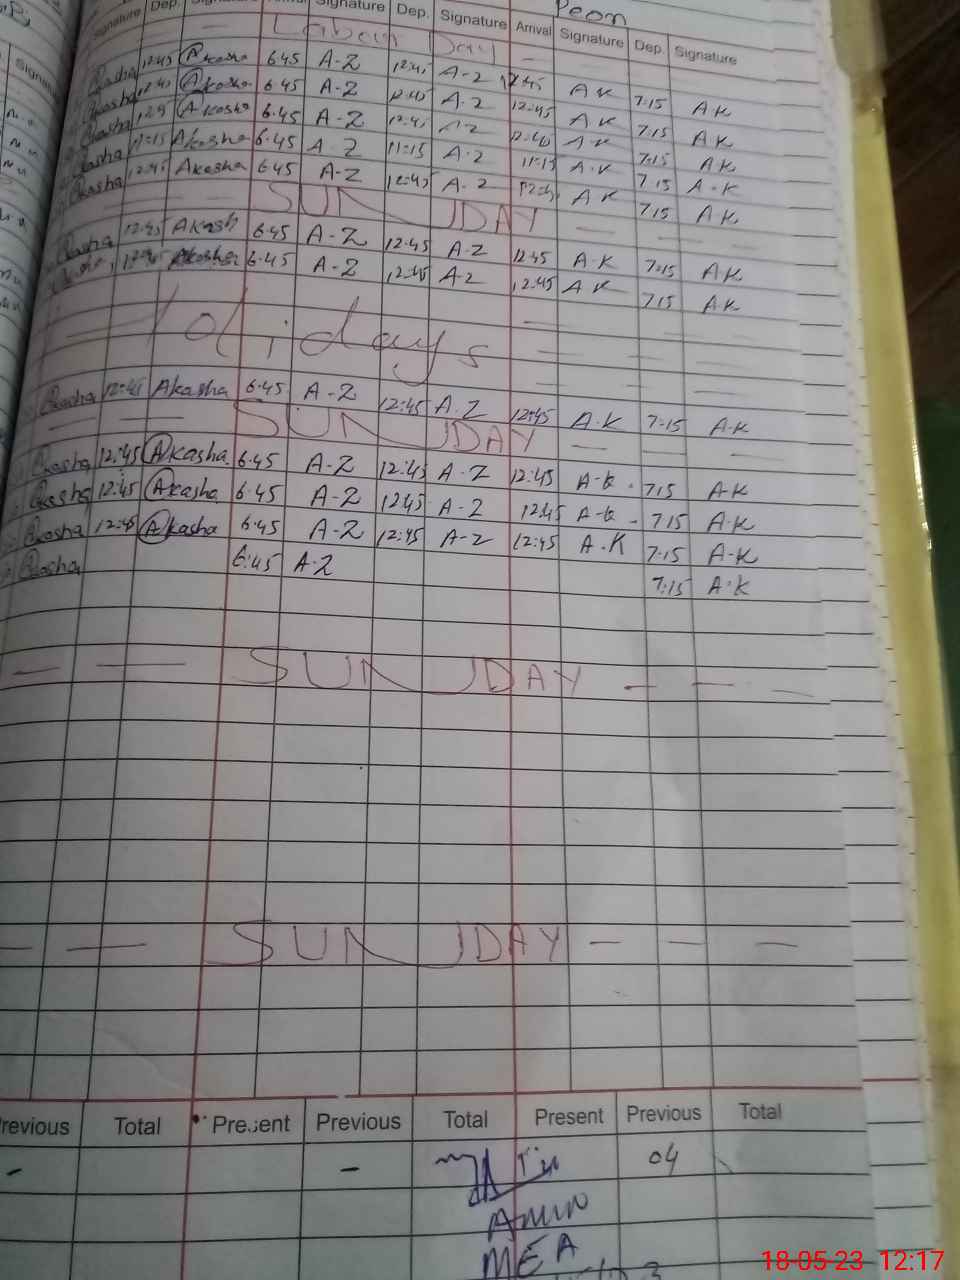 Peon
Signature Dep. Signature Arrival Signature Dep. Signature Arrival Signature Dep. Signature
Labour Day
12:45 Akasha 6:45 A-Z 12:45 A-Z 12:45 A K 7:15 A K
Akasha 12:45 Akasha 6:45 A-Z 12:45 A-Z 12:45 A K 7:15 A K
Akasha Akasha 6:45 A-Z 12:45 A-Z 12:40 A-K 7:15 A K
Akasha 11:15 Akasha 6:45 A-Z 11:15 A-Z 11:15 A-K 7:15 A-K
Akasha 12:45 Akasha 6:45 A-Z 12:45 A-Z A K 7:15 A K
SUNDAY
Akasha 12:45 Akash 6:45 A-Z 12:45 A-Z 12:45 A-K 7:15 A K
Akasha 6:45 A-Z 12:45 A-Z 12:45 A K 7:15 A K
Holidays
Akasha 12:45 Akasha 6:45 A-Z 12:45 A-Z 12:45 A-K 7:15 A-K
SUNDAY
Akasha 12:45 Akasha 6:45 A-Z 12:45 A-Z 12:45 A-K 7:15 A-K
Akasha 12:45 Akasha 6:45 A-Z 12:45 A-Z 12:45 A-K 7:15 A-K
Akasha 12:45 Akasha 6:45 A-Z 12:45 A-Z 12:45 A-K 7:15 A-K
Akasha 6:45 A-Z 7:15 A-K
SUNDAY
SUNDAY
Previous Total Present Previous Total Present Previous Total
- - 04
Amin
MEA
18-05-23 12:17